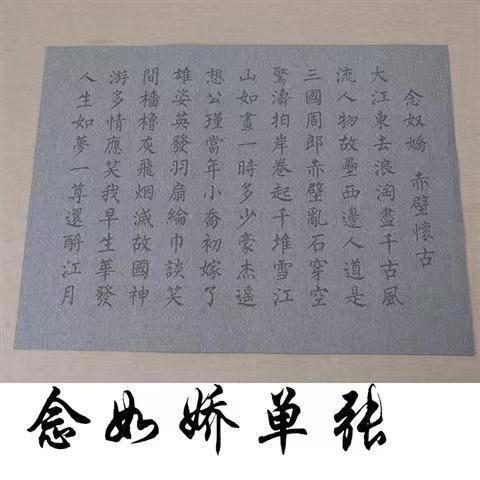 念奴嬌 赤壁懷古
大江東去浪淘盡千古風
流人物故壘西邊人道是
三國周郎赤壁亂石穿空
驚濤拍岸卷起千堆雪江
山如畫一時多少豪杰遥
想公瑾當年小喬初嫁了
雄姿英發羽扇綸巾談笑
間檣櫓灰飛烟滅故國神
游多情應笑我早生華發
人生如夢一尊還酹江月
念奴娇单张